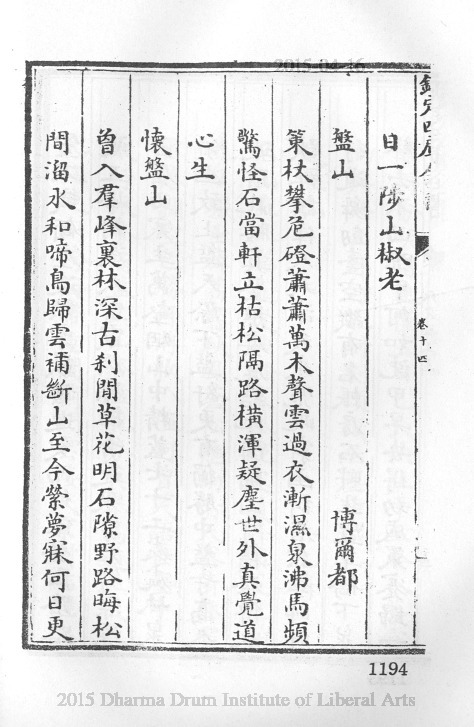 2015-04-16
欽定四庫全書
卷十四
日一陟山椒老
盤山
博爾都
策杖攀危磴蕭蕭萬木聲雲過衣漸濕泉沸馬頻
驚怪石當軒立枯松隔路橫渾疑塵世外真覺道
心生
懷盤山
曾入羣峰裏林深古刹閒草花明石隙野路晦松
間溜水和啼鳥歸雲補斷山至今縈夢寐何日更
1194
2015 Dharma Drum Institute of Liberal Arts